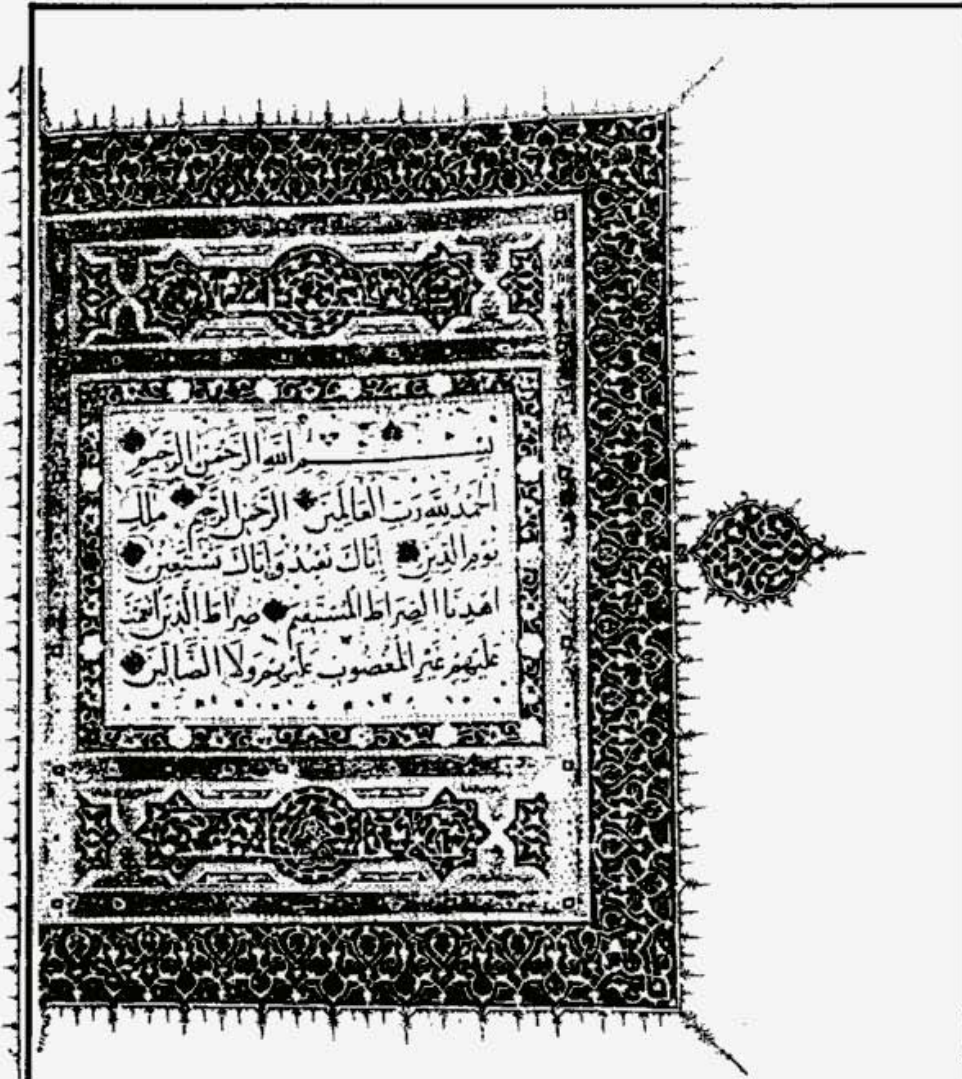 بسم الله الرحمن الرحيم
الحمد لله رب العالمين الرحمن الرحيم ملك
يوم الدين إياك نعبد وإياك نستعين
اهدنا الصراط المستقيم صراط الذين أنعمت
عليهم غير المغضوب عليهم ولا الضالين